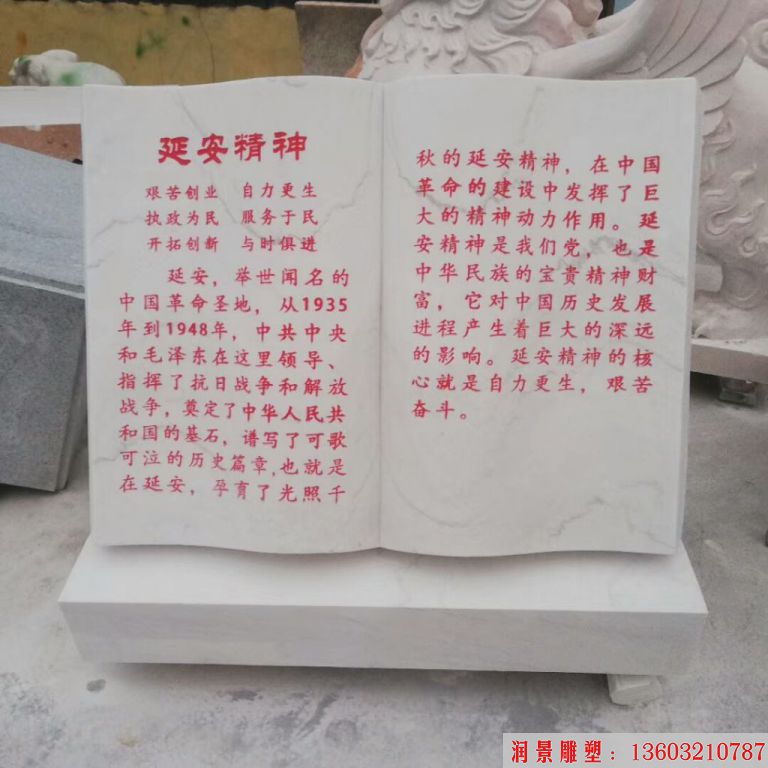 延安精神
艰苦创业 自力更生
执政为民 服务于民
开拓创新 与时俱进
延安，举世闻名的
中国革命圣地，从1935
年到1948年，中共中央
和毛泽东在这里领导、
指挥了抗日战争和解放
战争，奠定了中华人民共
和国的基石，谱写了可歌
可泣的历史篇章,也就是
在延安，孕育了光照千
秋的延安精神，在中国
革命的建设中发挥了巨
大的精神动力作用。延
安精神是我们党，也是
中华民族的宝贵精神财
富，它对中国历史发展
进程产生着巨大的深远
的影响。延安精神的核
心就是自力更生，艰苦
奋斗。
润景雕塑：13603210787